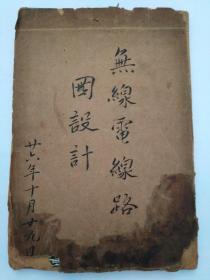 無線電線路
圖設計
廿六年十月廿九日